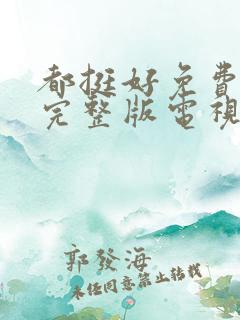 都挺好免費
完整版電視
郭發海
未经同意禁止转载